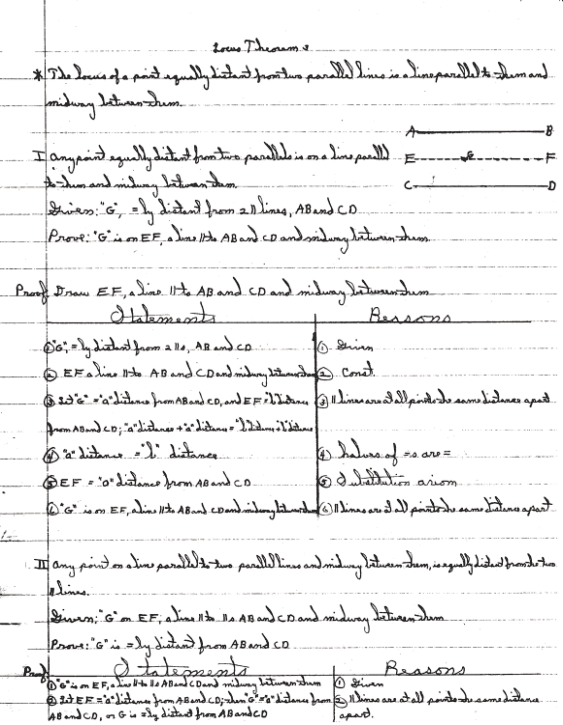 Locus Theorem s
* The locus of a point equally distant from two parallel lines is a line parallel to them and
midway between them.
A B
I any point equally distant from two parallels is on a line parallel
E G F
to them and midway between them.
C D
Given: "G", = ly distant from 2 || lines, AB and CD
Prove: "G" is on EF, a line || to AB and CD and midway between them
Proof Draw EF, a line || to AB and CD and midway between them
Statements Reasons
① "G", = ly distant from 2 ||s, AB and CD ① Given
② EF a line || to AB and CD and midway between them ② Const.
③ Let "G" = "a" distance from AB and CD, and EF = "b" distance ③ || lines are at all points the same distance apart
from AB and CD; "a" distance + "a" distance = "b" distance + "b" distance
④ "a" distance = "b" distance ④ halves of =s are =
⑤ EF = "a" distance from AB and CD ⑤ Substitution axiom
⑥ "G" is on EF, a line || to AB and CD and midway between them ⑥ || lines are at all points the same distance apart
II any point on a line parallel to two parallel lines and midway between them, is equally distant from the two
|| lines.
Given: "G" on EF, a line || to ||s AB and CD and midway between them
Prove: "G" is = ly distant from AB and CD
Proof Statements Reasons
① "G" is on EF, a line || to ||s AB and CD and midway between them ① Given
② Let EF = "a" distance from AB and CD; then "G" = "a" distance from ② || lines are at all points the same distance
AB and CD, or G is = ly distant from AB and CD apart.